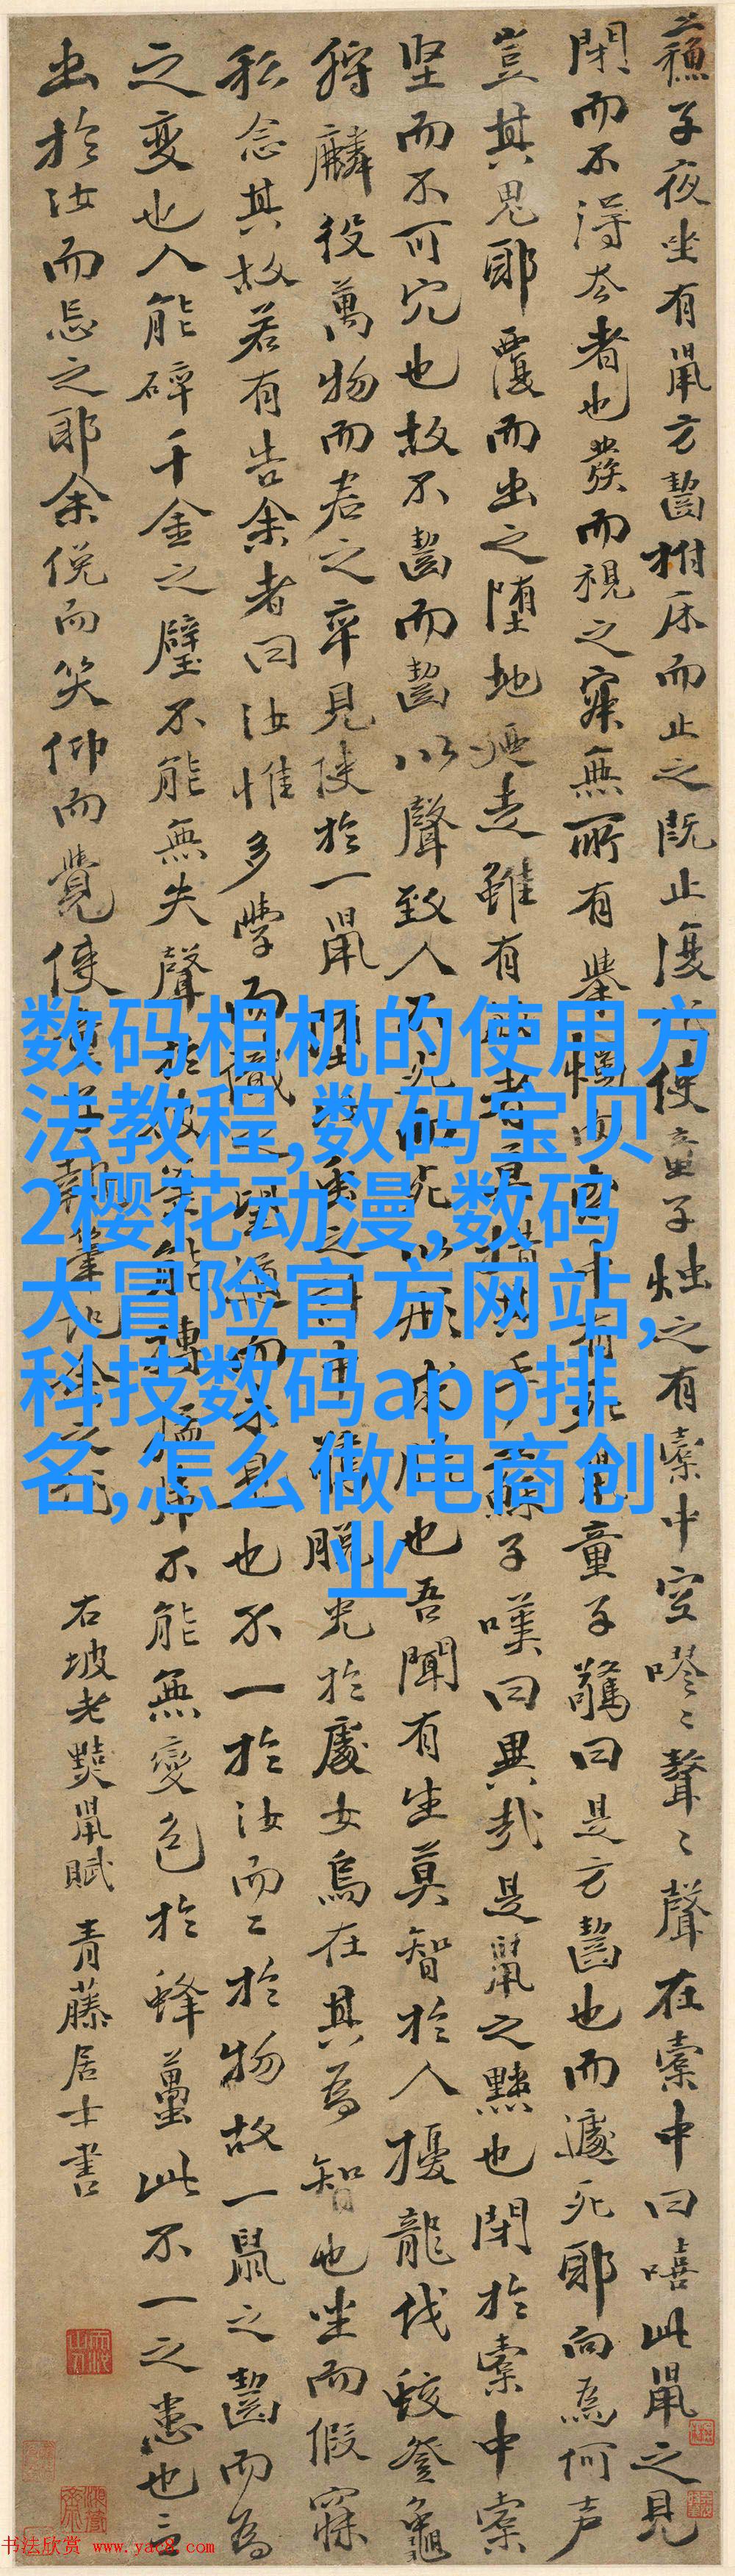 蘇子夜坐有鼠方齧拊床而止之既止復作使童子燭之有橐中空嘐〻聱〻聲在橐中曰嘻此鼠之見
閉而不得去者也發而視之寂無所有舉燭而索中有死鼠童子驚曰是方齧也而遽死耶向為何声
豈其鬼耶覆而出之墮地廼走雖有敏者莫措其手蘇子嘆曰異哉是鼠之黠也閉於橐中橐
坚而不可穴也故不齧而齧以聲致人不死而死以形求脫也吾聞有生莫智於人擾龍伐蛟登龜
狩麟役萬物而君之卒見使於一鼠墮此蟲之計中驚脫兔於處女烏在其為智也坐而假寐
私念其故若有告余者曰汝惟多學而識之望道而未見也不一於汝而二於物故一鼠之齧而為
之變也人能碎千金之璧不能無失聲於破釜能搏猛虎不能無變色於蜂蠆此不一之患也言
出於汝而忘之耶余俛而笑仰而覺使童子執筆記余之作 右坡老黠鼠賦 青藤居士書
数码相机的使用方
法教程,数码宝贝
2樱花动漫,数码
大冒险官方网站,
科技数码app排
名,怎么做电商创
业
书法欣赏 www.yac8.com